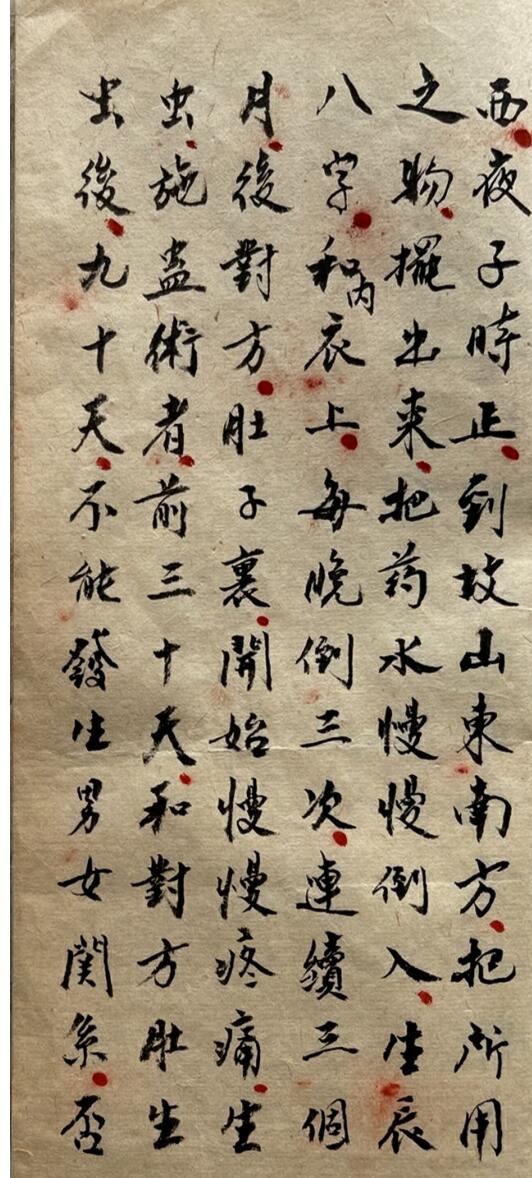 西夜子時正到坟山東南方把所用
之物擺出来把药水慢慢倒入生辰
八字和内衣上每晚倒三次連續三個
月後對方肚子裏開始慢慢疼痛生
虫施蛊術者前三十天和對方肚生
虫後九十天不能發生男女関系否